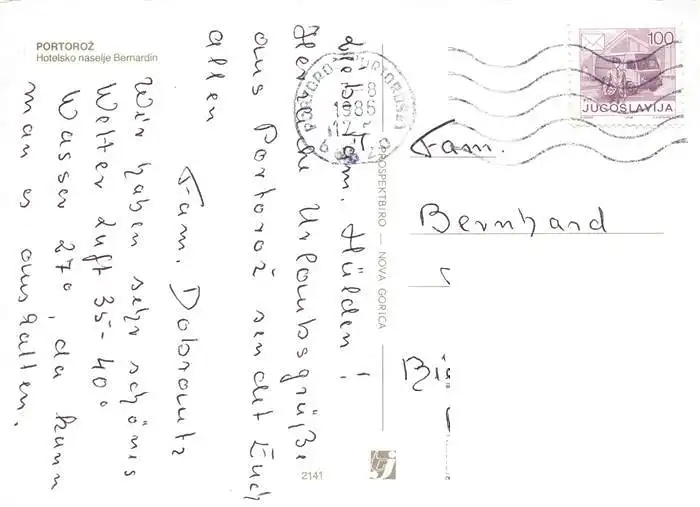 PORTOROŽ
Hotelsko naselje Bernardin
Liebe Fam. Hülden!
Herzliche Urlaubsgrüße
aus Portorož sendet Euch
allen
Fam. Dobrautz
Wir haben sehr schönes
Wetter Luft 35-40°
Wasser 27°, da kann
man es aushalten.
PROSPEKTBIRO — NOVA GORICA
2141
1986
12
100
JUGOSLAVIJA
Fam.
Bernhard